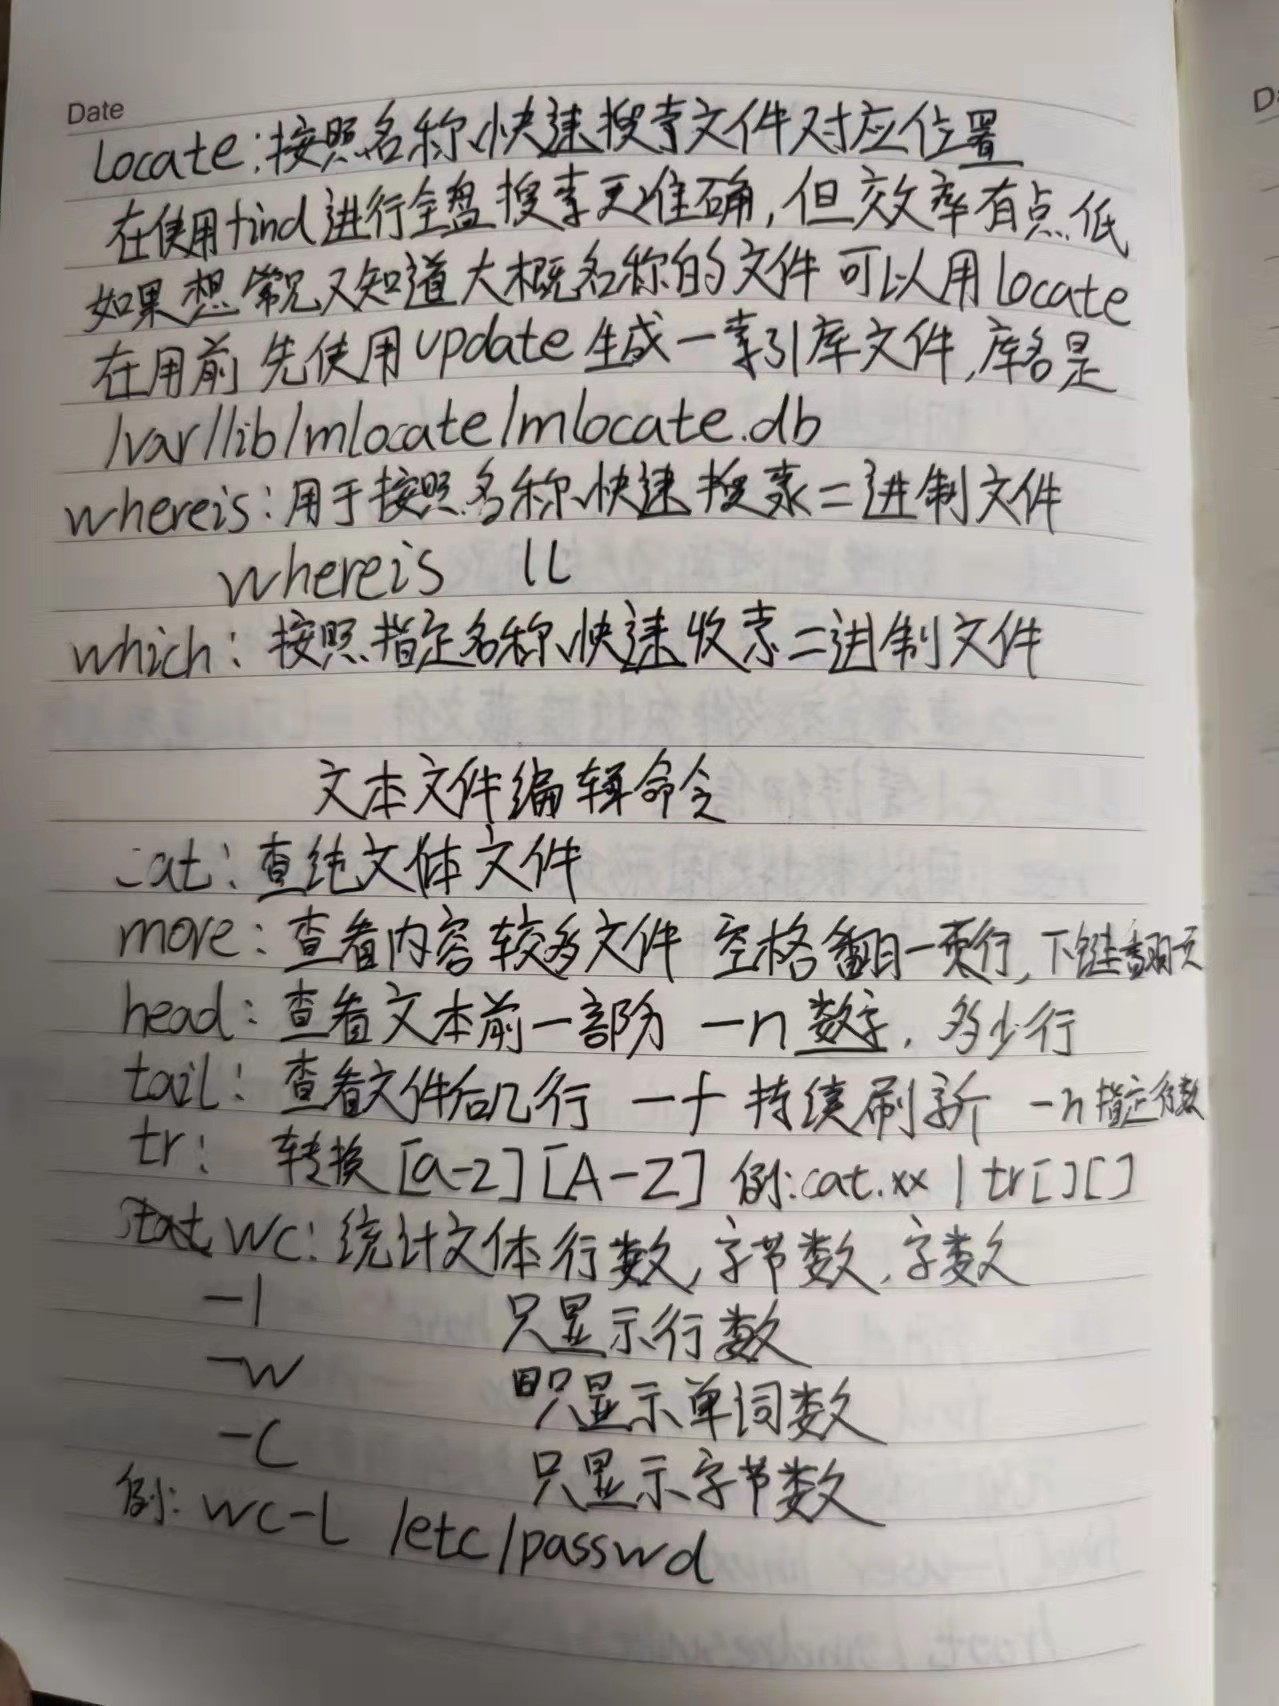 Date
locate:按照名称快速搜索文件对应位置
在使用find进行全盘搜索更准确,但效率有点低
如果想常见又知道大概名称的文件 可以用locate
在用前 先使用update生成一索引库文件,库名是
/var/lib/mlocate/mlocate.db
whereis:用于按照名称快速搜索二进制文件
whereis ll
which:按照指定名称快速收索二进制文件
文本文件编辑命令
cat:查纯文体文件
more:查看内容较多文件 空格翻一页行,下键翻页
head:查看文本前一部份 -n 数字,多少行
tail:查看文件后几行 -f 持续刷新 -n指定行数
tr: 转换[a-z][A-Z] 例:cat.xx | tr[][]
stat wc:统计文体行数,字节数,字数
-l 只显示行数
-w 只显示单词数
-c 只显示字节数
例:wc-l /etc/passwd